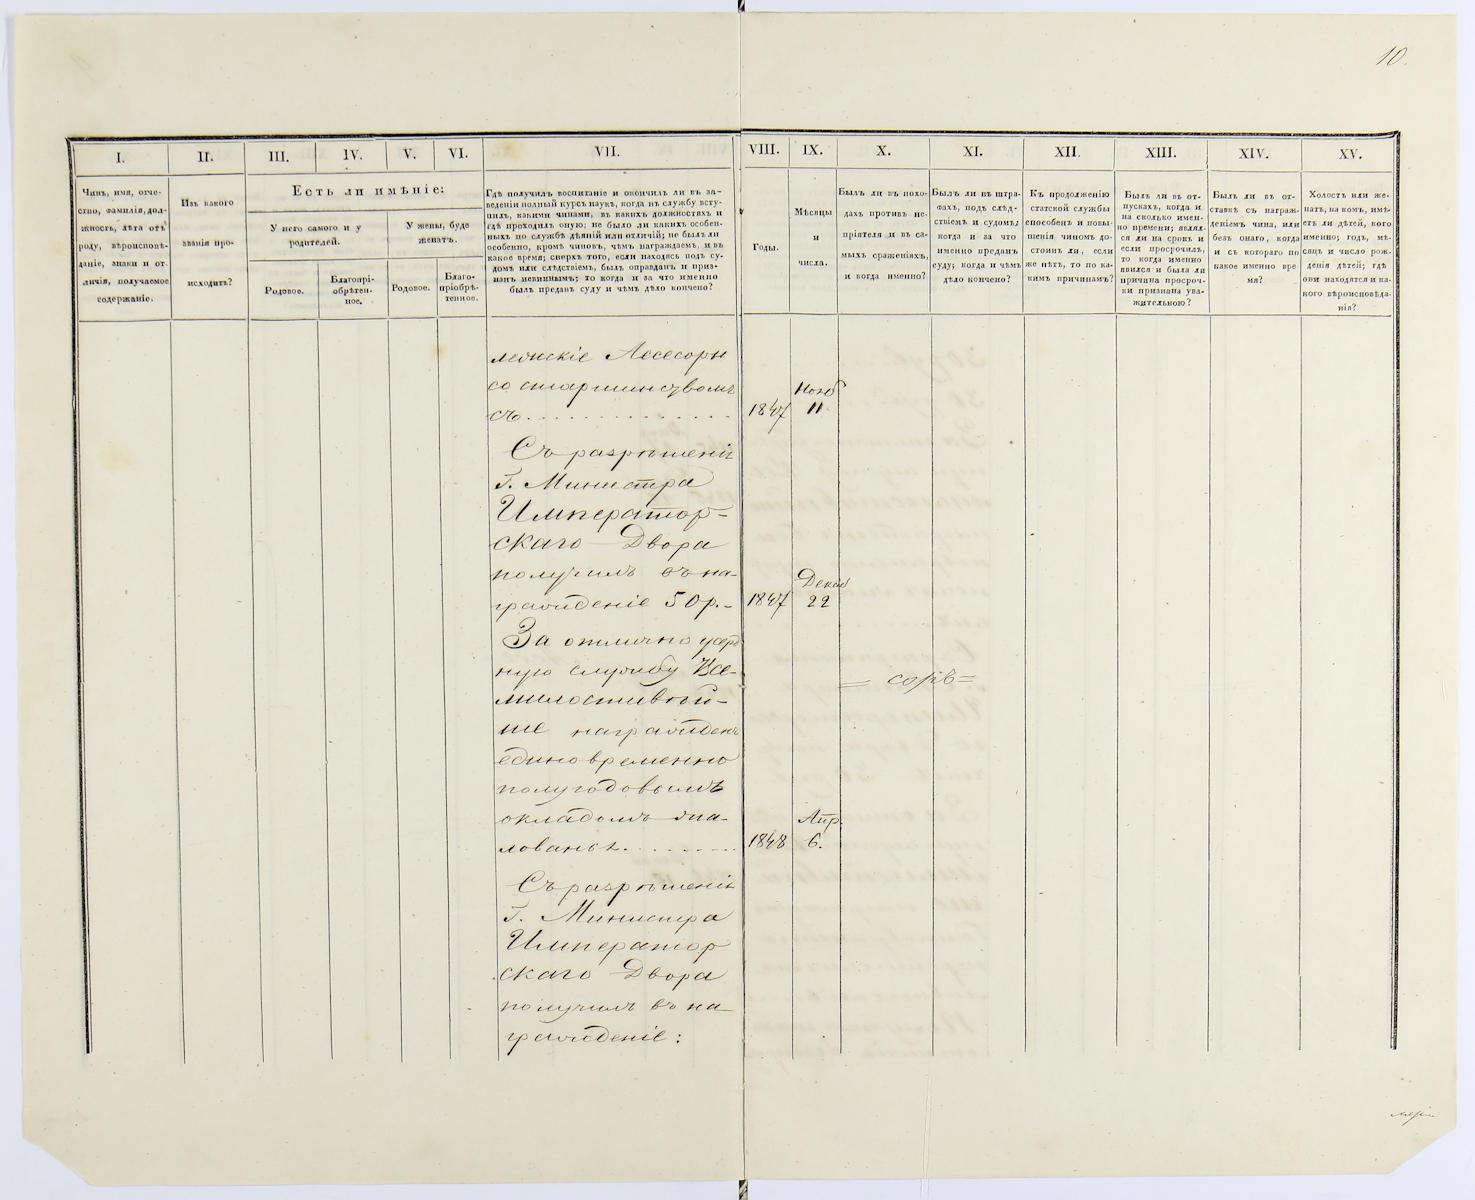 10.
I.
II.
III.
IV.
V.
VI.
VII.
VIII.
IX.
X.
XI.
XII.
XIII.
XIV.
XV.
Чинъ, имя, отче-
ство, фамилія, дол-
жность, лѣта отъ
роду, вѣроисповѣ-
даніе, знаки и от-
личія, получаемое
содержаніе.
Изъ какого
званія про-
исходитъ?
Есть ли имѣніе:
У него самого и у
родителей.
У жены, буде
женатъ.
Родовое.
Благопрі-
обрѣтен-
ное.
Родовое.
Благо-
пріобрѣ-
тенное.
Гдѣ получилъ воспитаніе и окончилъ ли въ за-
веденіи полный курсъ наукъ, когда въ службу всту-
пилъ, какими чинами, въ какихъ должностяхъ и
гдѣ проходилъ оную; не было ли какихъ особен-
ныхъ по службѣ дѣяній или отличій; не былъ ли
особенно, кромѣ чиновъ, чѣмъ награждаемъ, и въ
какое время; сверхъ того, если находясь подъ су-
домъ или слѣдствіемъ, былъ оправданъ и приз-
нанъ невиннымъ; то когда и за что именно
былъ преданъ суду и чѣмъ дѣло кончено?
Годы.
Мѣсяцы
и
числа.
Былъ ли въ похо-
дахъ противъ не-
пріятеля и въ са-
мыхъ сраженіяхъ,
и когда именно?
Былъ ли въ штра-
фахъ, подъ слѣд-
ствіемъ и судомъ;
когда и за что
именно преданъ
суду; когда и чѣмъ
дѣло кончено?
Къ продолженію
статской службы
способенъ и повы-
шенія чиномъ до-
стоинъ ли, если
же нѣтъ, то по ка-
кимъ причинамъ?
Былъ ли въ от-
пускахъ, когда и
на сколько имен-
но времени; являл-
ся ли на срокъ и
если просрочилъ,
то когда именно
явился и была ли
причина просроч-
ки признана ува-
жительною?
Былъ ли въ от-
ставкѣ съ награж-
деніемъ чина, или
безъ онаго, когда
и съ котораго по
какое именно вре
мя?
Холостъ или же-
натъ, на комъ, имѣ-
етъ ли дѣтей, кого
именно; годъ, мѣ-
сяцъ и число рож-
денія дѣтей; гдѣ
они находятся и ка-
кого вѣроисповѣда-
нія?
лежскіе Асесоры
со старшинствомъ
съ . . . . . 1847 Нояб 11.
Съ разрѣшенія
Г. Министра
Император-
скаго Двора
получилъ въ на-
гражденіе 50 р. - 1847 Декаб 22
За отлично усерд
ную службу Все-
милостивѣй-
ше награжденъ
единовременно
полугодовымъ
окладомъ жа-
лованья . . . . . 1848 Апр. 6.
Съ разрѣшенія
Г. Министра
Император
скаго Двора
получилъ въ на-
гражденіе: